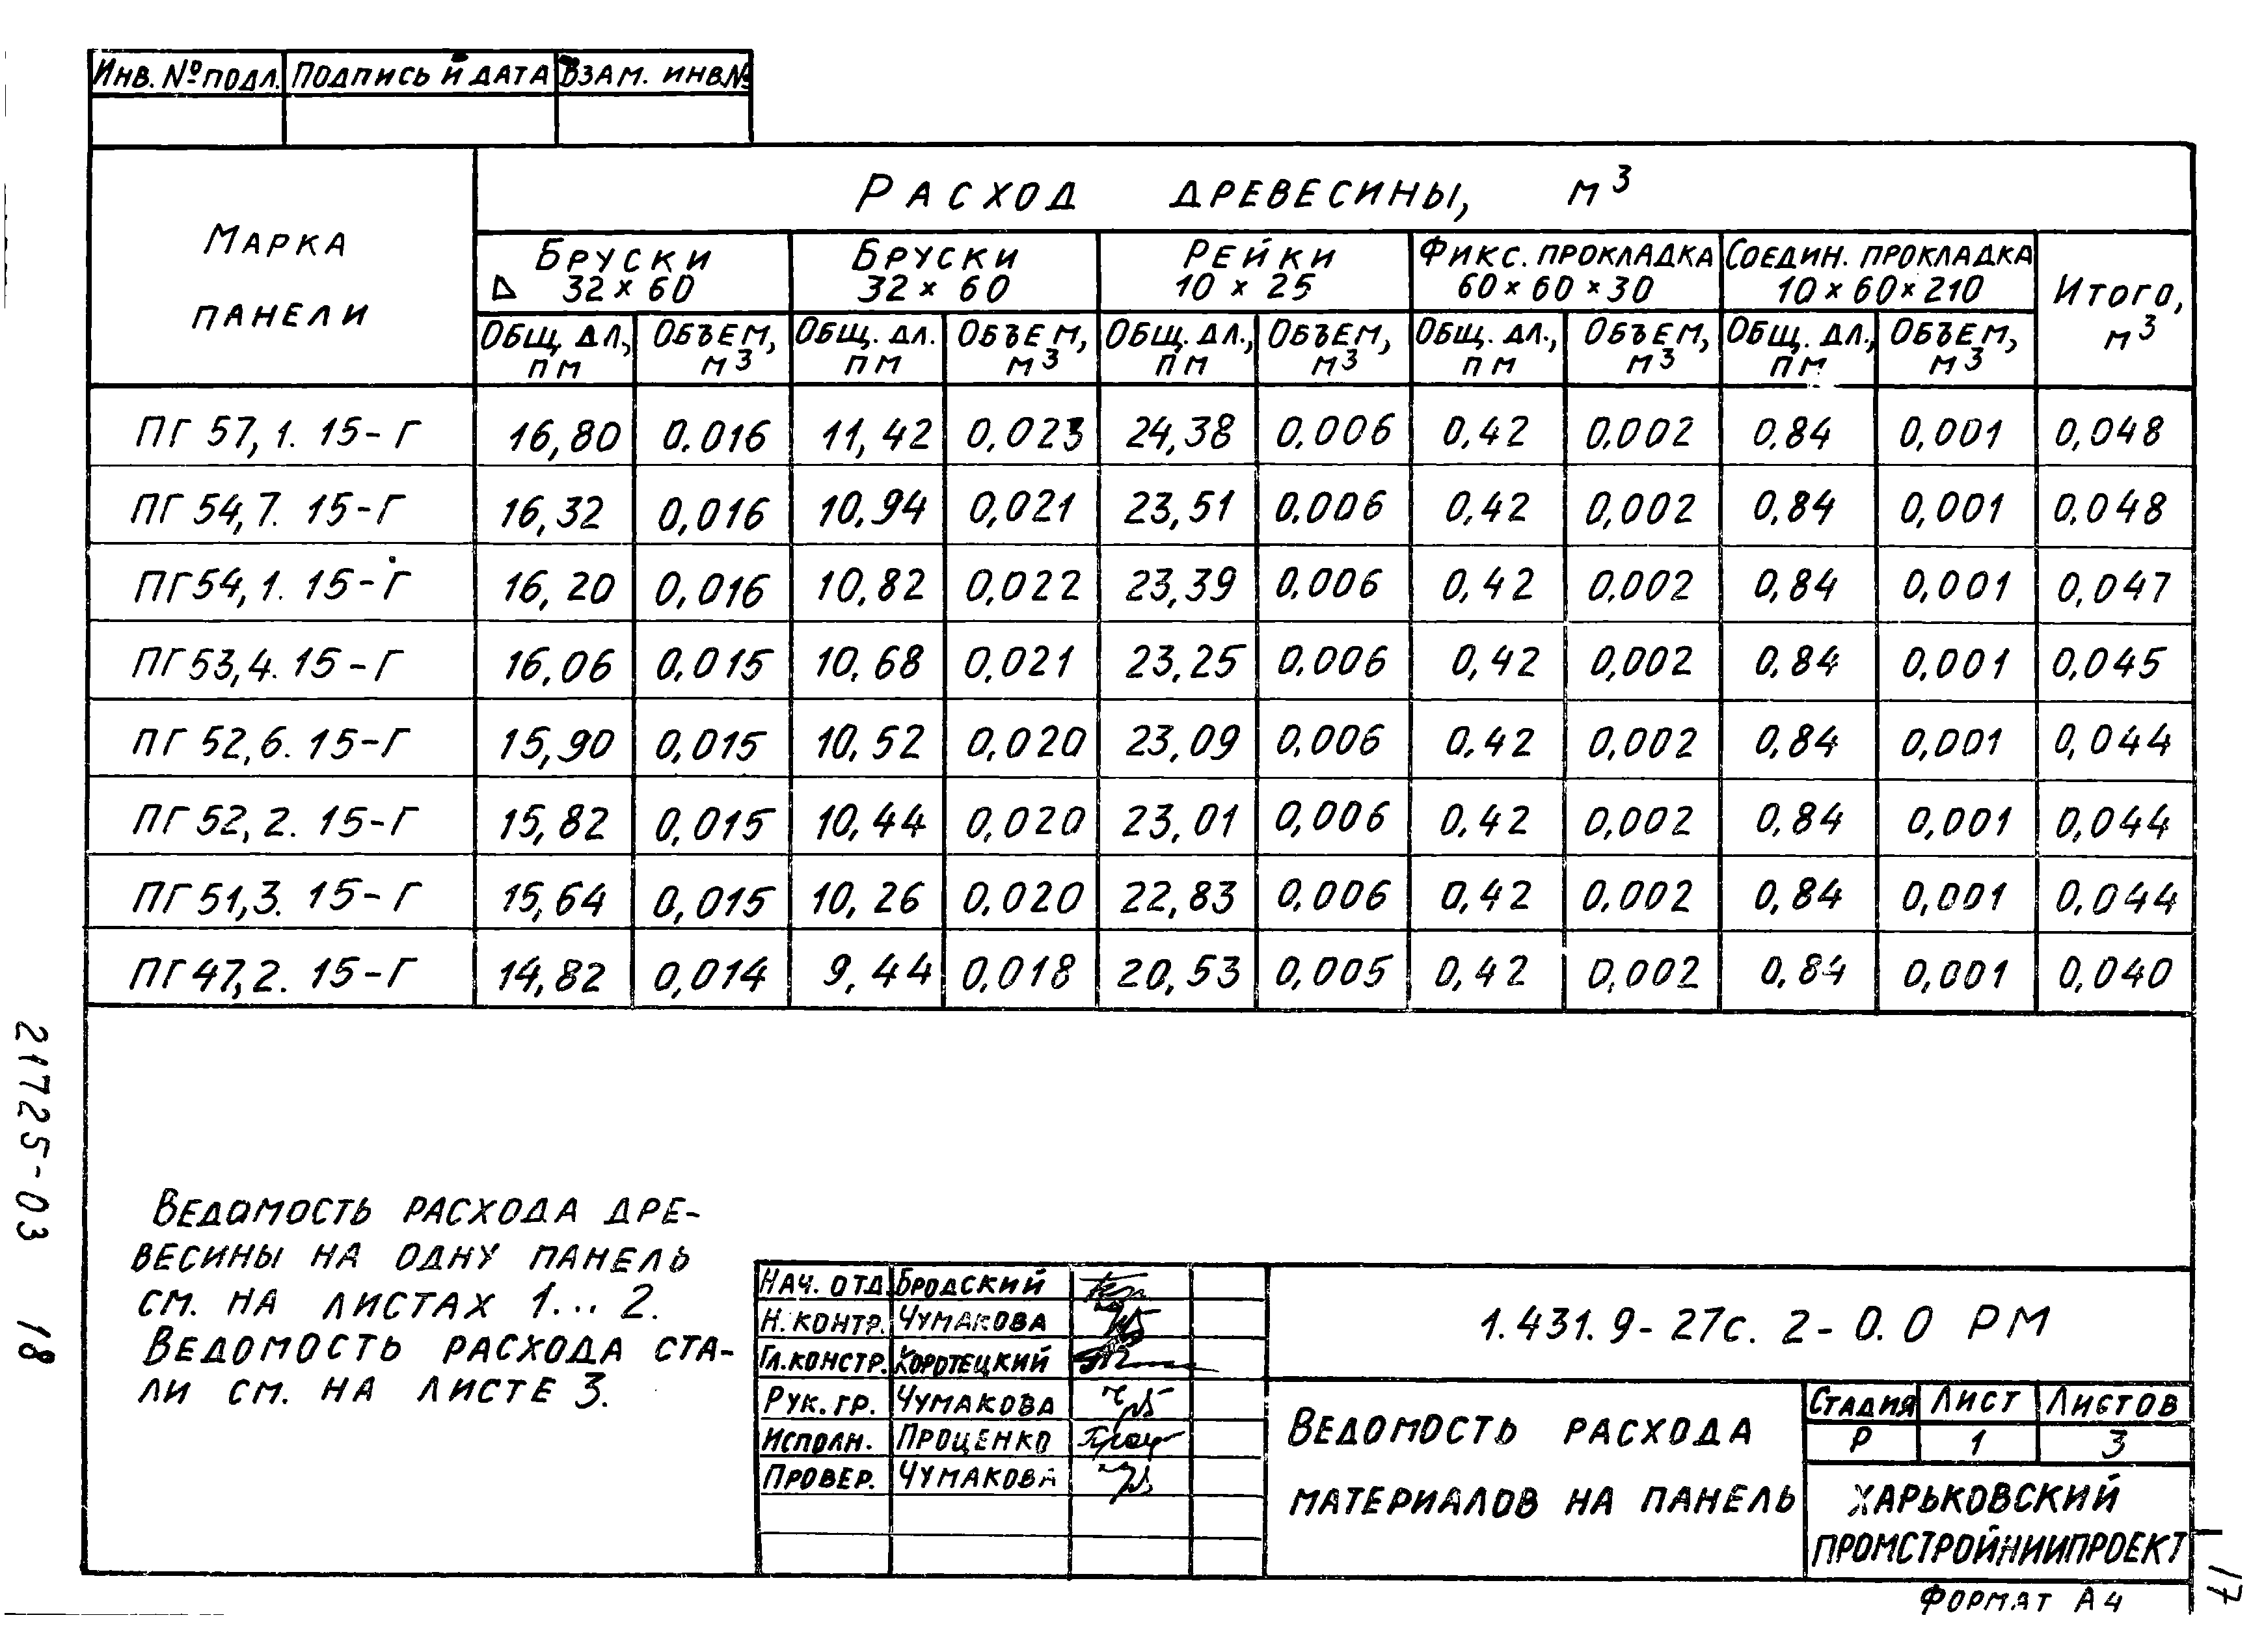 Инв. № подл. Подпись и дата Взам. инв №
Марка панели
Расход древесины, м³
Бруски ⊿ 32×60
Бруски 32×60
Рейки 10×25
Фикс. прокладка 60×60×30
Соедин. прокладка 10×60×210
Итого, м³
Общ. дл., пм Объем, м³ Общ. дл. пм Объем, м³ Общ. дл., пм Объем, м³ Общ. дл., пм Объем, м³ Общ. дл., пм Объем, м³
ПГ 57,1. 15-Г 16,80 0.016 11,42 0,023 24,38 0.006 0,42 0,002 0,84 0,001 0,048
ПГ 54,7. 15-Г 16,32 0,016 10,94 0,021 23,51 0.006 0,42 0,002 0,84 0,001 0,048
ПГ 54,1. 15-Г 16,20 0,016 10,82 0,022 23,39 0.006 0,42 0,002 0,84 0,001 0,047
ПГ 53,4. 15-Г 16,06 0.015 10,68 0,021 23,25 0.006 0,42 0,002 0,84 0,001 0,045
ПГ 52,6. 15-Г 15,90 0,015 10,52 0,020 23,09 0,006 0,42 0,002 0,84 0,001 0,044
ПГ 52,2. 15-Г 15,82 0,015 10,44 0,020 23,01 0,006 0,42 0,002 0,84 0,001 0,044
ПГ 51,3. 15-Г 15,64 0,015 10,26 0,020 22,83 0,006 0,42 0.002 0,84 0,001 0,044
ПГ 47,2. 15-Г 14,82 0,014 9,44 0,018 20,53 0,005 0,42 0,002 0,84 0,001 0,040
21725-03 18
Ведомость расхода дре-
весины на одну панель
см. на листах 1... 2.
Ведомость расхода ста-
ли см. на листе 3.
Нач. отд. Бродский
Н. контр. Чумакова
Гл. констр. Коротецкий
Рук. гр. Чумакова
Исполн. Проценко
Провер. Чумакова
1.431.9-27с. 2-0.0 РМ
Ведомость расхода
материалов на панель
Стадия Лист Листов
Р 1 3
Харьковский
Промстройниипроект
Формат А4
17